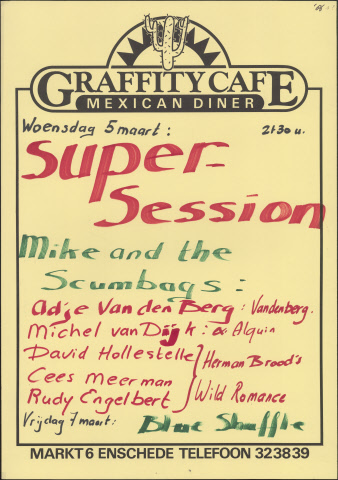 GRAFFITY CAFE
MEXICAN DINER
Woensdag 5 maart: 21.30 u.
Super-
Session
Mike and the
Scumbags:
Adje Van den Berg: Vandenberg.
Michel van Dijk: Alquin
David Hollestelle
Cees Meerman
Rudy Engelbert
Herman Brood's
Wild Romance
Vrijdag 7 maart: Blue Shuffle
MARKT 6 ENSCHEDE TELEFOON 323839